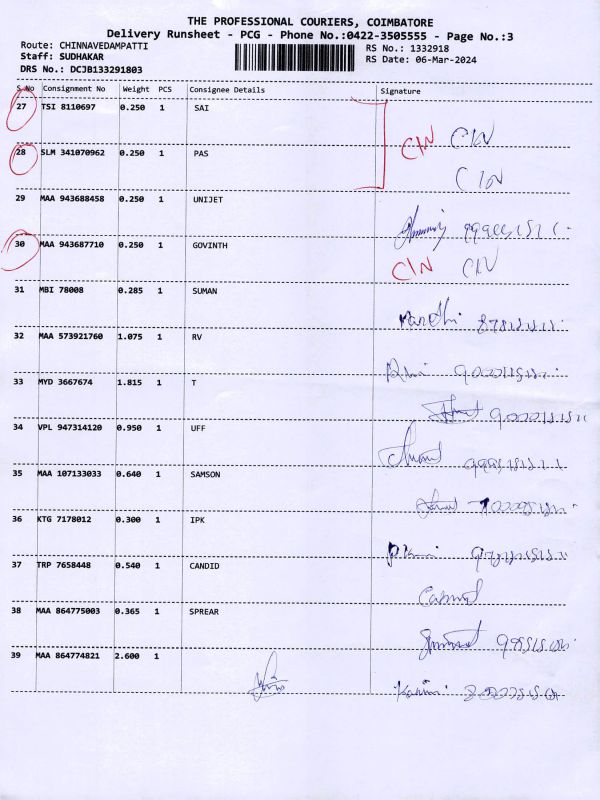 THE PROFESSIONAL COURIERS, COIMBATORE
Delivery Runsheet - PCG - Phone No.:0422-3505555 - Page No.:3
Route: CHINNAVEDAMPATTI
RS No.: 1332918
Staff: SUDHAKAR
RS Date: 06-Mar-2024
DRS No.: DCJB133291803
S No Consignment No Weight PCS Consignee Details Signature
27 TSI 8110697 0.250 1 SAI
CIN CIN
28 SLM 341070962 0.250 1 PAS
CIN
29 MAA 943688458 0.250 1 UNIJET
30 MAA 943687710 0.250 1 GOVINTH
CIN CIN
31 MBI 78008 0.285 1 SUMAN
32 MAA 573921760 1.075 1 RV
33 MYD 3667674 1.815 1 T
34 VPL 947314120 0.950 1 UFF
35 MAA 107133033 0.640 1 SAMSON
36 KTG 7178012 0.300 1 IPK
37 TRP 7658448 0.540 1 CANDID
38 MAA 864775003 0.365 1 SPREAR
39 MAA 864774821 2.600 1